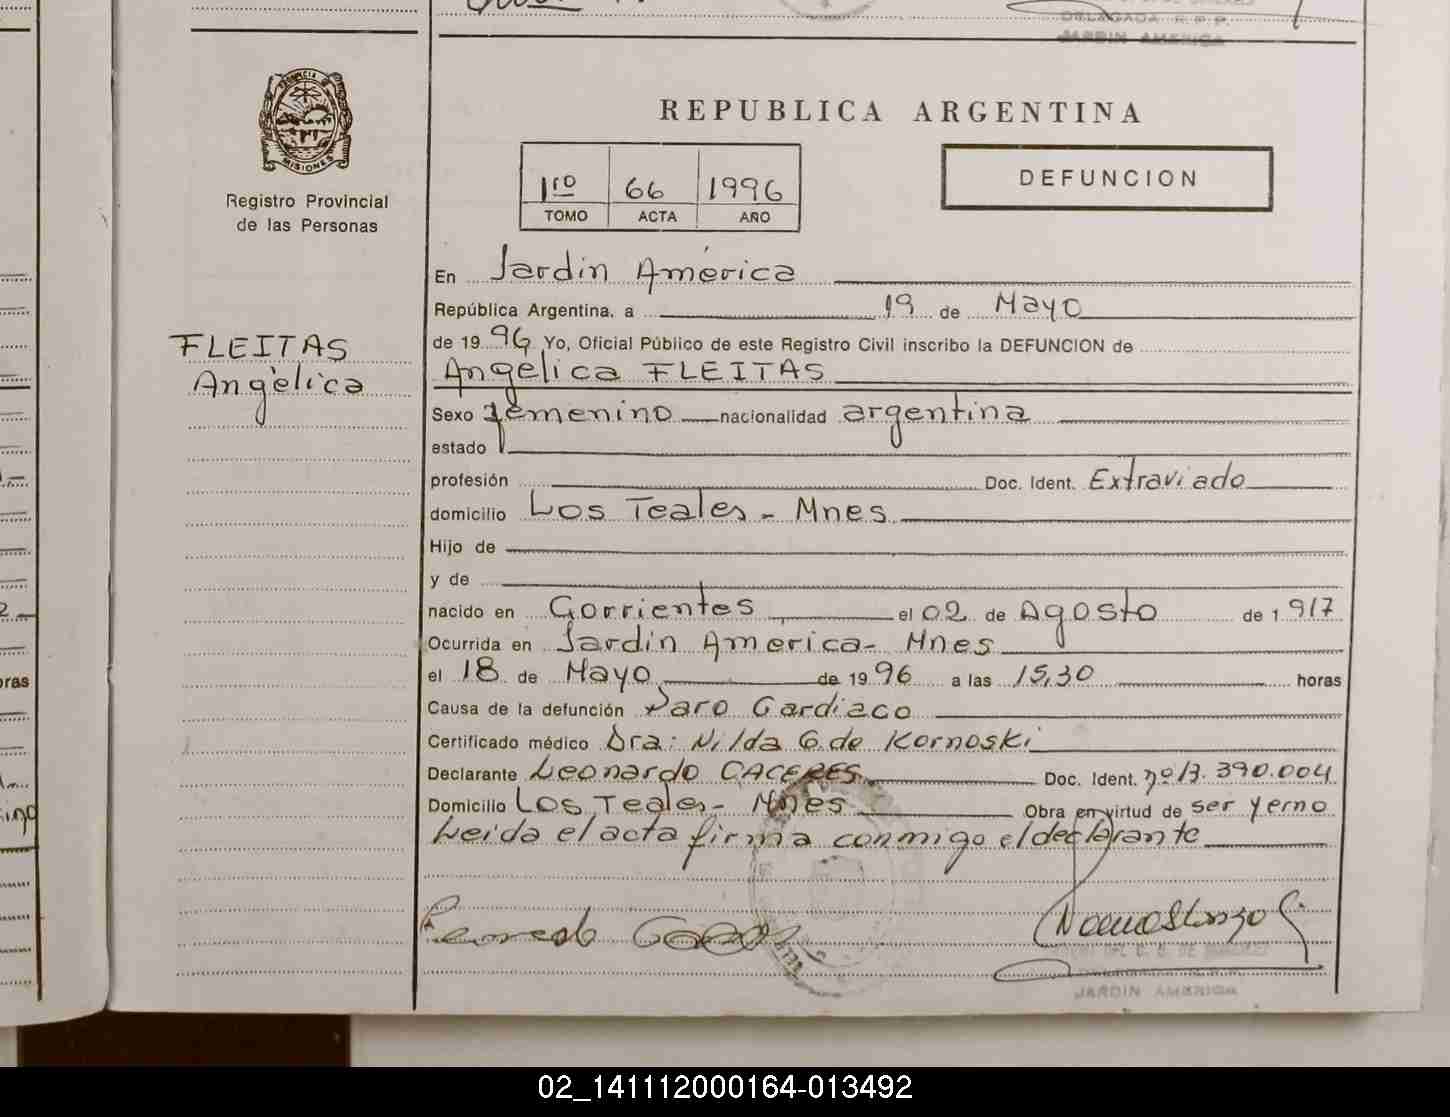 DELEGADA R.P.P.
JARDIN AMERICA
PROVINCIA DE
MISIONES
Registro Provincial
de las Personas
FLEITAS
Angélica
REPUBLICA ARGENTINA
1ro 66 1996
TOMO ACTA AÑO
DEFUNCION
En Jardín América
República Argentina, a 19 de Mayo
de 1996 Yo, Oficial Público de este Registro Civil inscribo la DEFUNCION de
Angélica FLEITAS
Sexo femenino nacionalidad argentina
estado
profesión Doc. Ident. Extraviado
domicilio Los Teales - Mnes
Hijo de
y de
nacido en Corrientes el 02 de Agosto de 1917
Ocurrida en Jardín America - Mnes
el 18 de Mayo de 1996 a las 15,30 horas
Causa de la defunción Paro Cardiaco
Certificado médico Dra: Nilda G. de Kornoski
Declarante Leonardo CACERES Doc. Ident. nº 17.390.004
Domicilio Los Teales - Mnes Obra en virtud de ser yerno
Leida el acta firma conmigo el declarante
JARDIN AMERICA
02_141112000164-013492